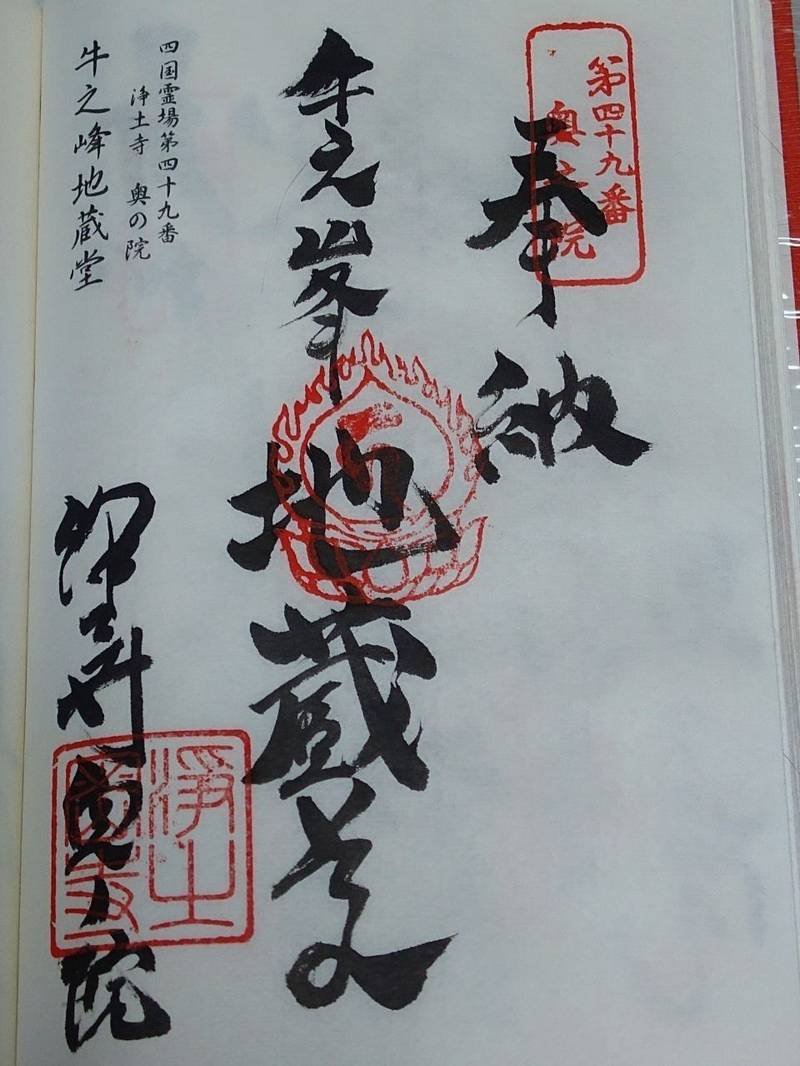 第四十九番
奥之院
奉納
牛之峯地蔵尊
浄土寺奥ノ院
浄土
四国霊場第四十九番
浄土寺 奥の院
牛之峰地蔵堂